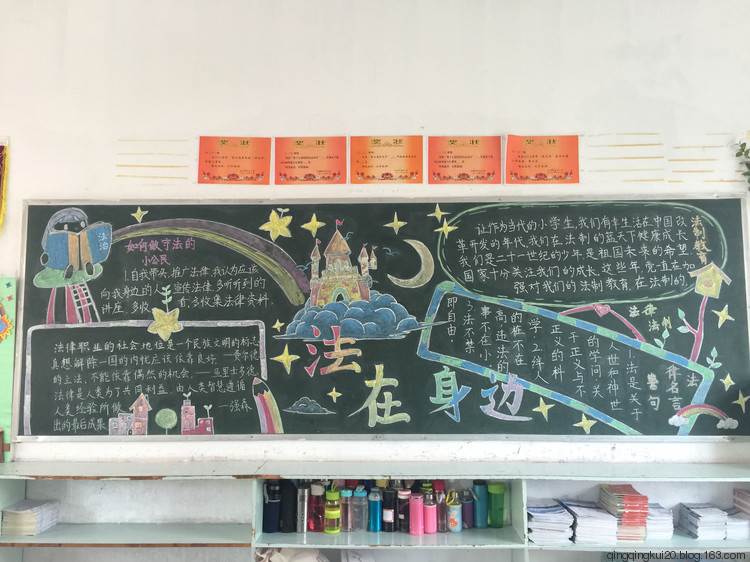 奖状
奖状
奖状
奖状
奖状
法治
如何做守法的
小公民
1.自我带头,推广法律,我认为应该
向我身边的人宣传法律,多听听到的
讲座,多收 看,多收集法律资料.
让作为当代的小学生,我们有丰生活在中国改
革开发的年代,我们在法制的蓝天下健康成长
我们是二十一世纪的少年是祖国未来的希望
国家十分关注我们的成长,这些年党一直在加
强对我们的法制教育,在法制的.
法制教育
法律职业的社会地位是一个民族文明的标志
——费尔德
的立法,不能依靠偶然的机会.——亚里士多德
法律是人类为了共同利益,由人类智慧遵循
人类经验所做 ——强森
出的最后成果
法在身边
法律法制
警句
名言
1.法是关于
人世和神世
的学问关
于正义与不
正义的科
学.2.绊人
的桩不在
高,违法的
事不在小
3.法不禁
即自由.
法
qingqingkui20.blog.163.com